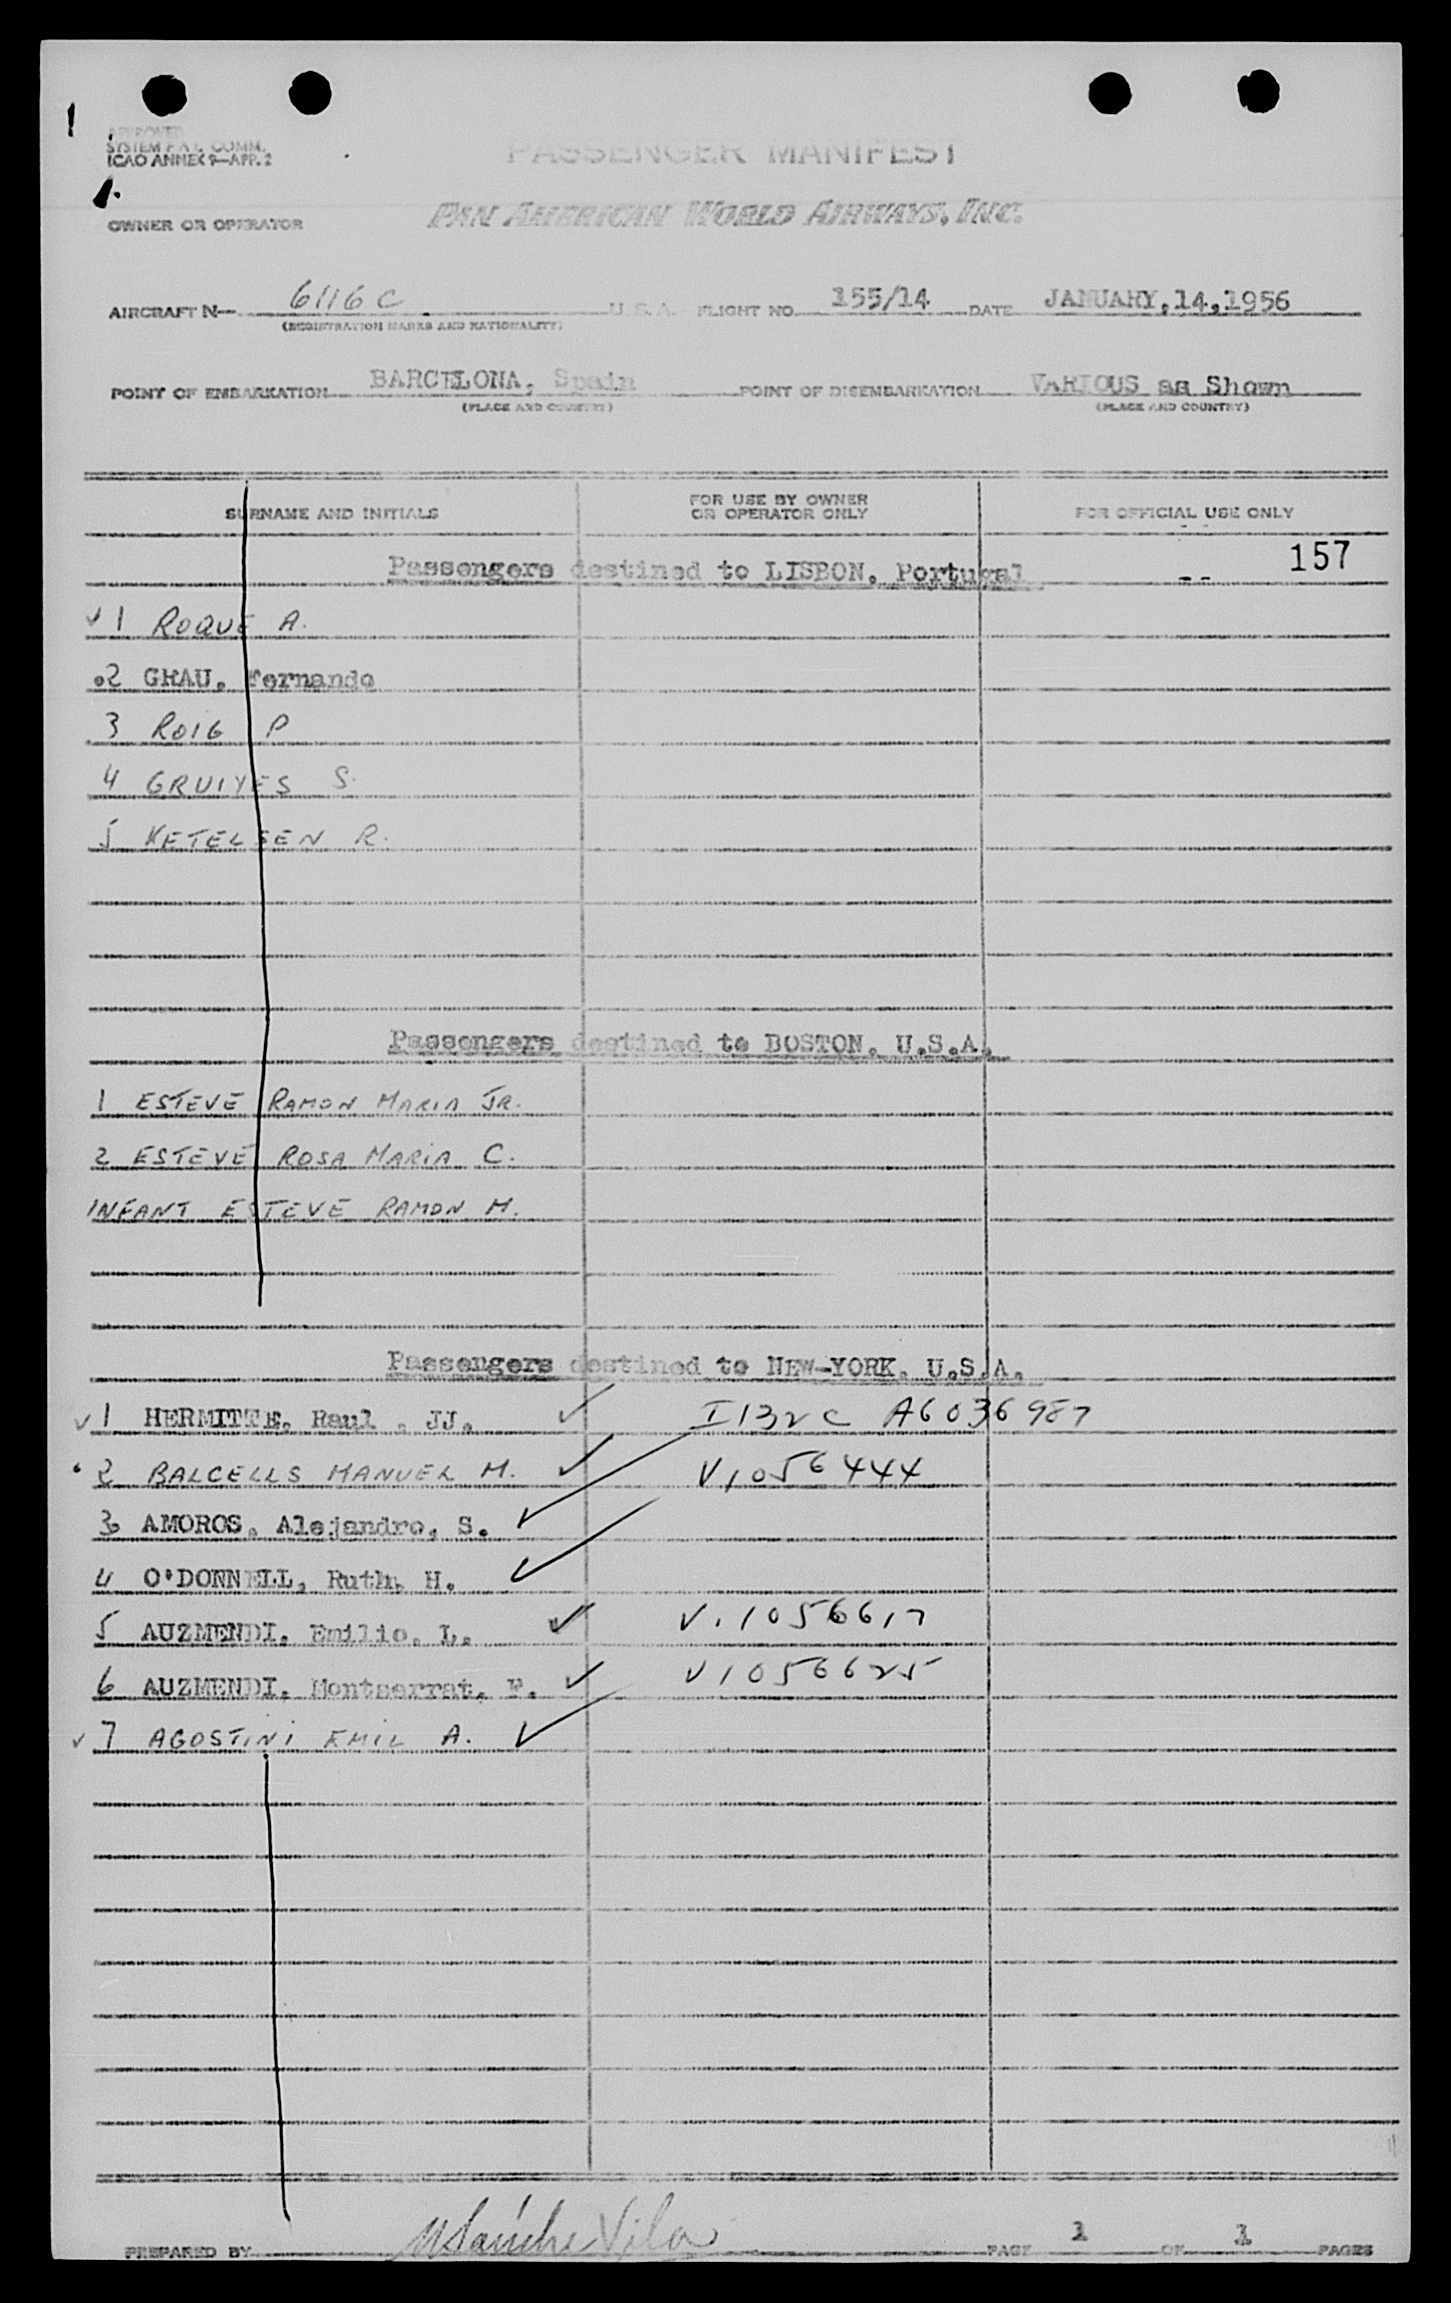 APPROVED
SYSTEM F.A.L. COMM.
ICAO ANNEX 9—APP. 2
PASSENGER MANIFEST
OWNER OR OPERATOR PAN AMERICAN WORLD AIRWAYS, INC.
AIRCRAFT N— 6116C U.S.A. FLIGHT NO. 155/14 DATE JANUARY,14,1956
(REGISTRATION MARKS AND NATIONALITY)
POINT OF EMBARKATION BARCELONA, Spain POINT OF DISEMBARKATION VARIOUS as Shown
(PLACE AND COUNTRY) (PLACE AND COUNTRY)
SURNAME AND INITIALS FOR USE BY OWNER OR OPERATOR ONLY FOR OFFICIAL USE ONLY
Passengers destined to LISBON, Portugal -- 157
✓ 1 ROQUE A.
2 GRAU, fernando
3 ROIG P
4 GRUIYES S.
5 KETELSEN R.
Passengers destined to BOSTON, U.S.A.
1 ESTEVE RAMON MARIA JR.
2 ESTEVE ROSA MARIA C.
INFANT ESTEVE RAMON M.
Passengers destined to NEW-YORK, U.S.A.
✓ 1 HERMITTE, Raul , JJ. ✓ I132c A6036987
2 BALCELLS MANUEL M. ✓ V1056444
3 AMOROS, Alejandro, S. ✓
4 O'DONNELL, Ruth, H. ✓
5 AUZMENDI, Emilio, L. ✓ V.1056617
6 AUZMENDI, Montserrat, F. ✓ V1056625
✓ 7 AGOSTINI EMIL A. ✓
PREPARED BY PAGE 1 OF 1 PAGES